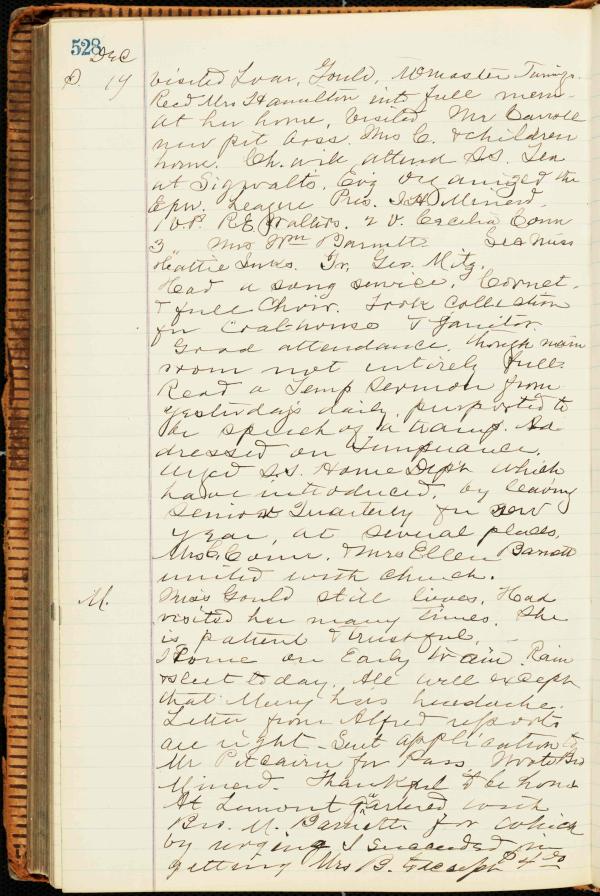 528 Dec
S. 19 visited Loar, Gould, McMaster
Read Mrs Hamilton into full mem-
at her home, visited Mr Carroll
new pit boss. Mrs C. & children
home. Ch. will attend S.S. Tea
at Sigwalts. Evg organized the
Epw. League Pres. I.H. Minerd.
1 V.P. R.E. Walters. 2 V. Cecilia Conn
3 " Mrs Wm Barnett Sec Miss
Hattie Inks. Tr. Geo. Mitz.
Had a song service, Cornet,
& full Choir. Took Collection
for Coal-house & Janitor.
Good attendance, though main
room not entirely full.
Read a Temp Sermon from
yesterday's daily, purported to
be speech of a tramp. Ad
dressed on Temperance.
Urged S.S. Home Dept. which
have introduced, by leaving
Senior Quarterly for new
year, at several places.
Mrs C. Conn, & Mrs Ellen Barnett
united with church.
M. Miss Gould still lives. Had
visited her many times. She
is patient & trustful.
Home on Early train. Rain
& sleet today. All well except
that Mary has headache.
Letter from Alfred reports
all right - Sent application to
Mr Pitcairn for Pass. Wrote Bro
Minerd. Thankful to be home
At Lemont "Partered" with
Bro. M. Barnett for which
by urging I succeeded in
getting Mrs B. to accept $4.00